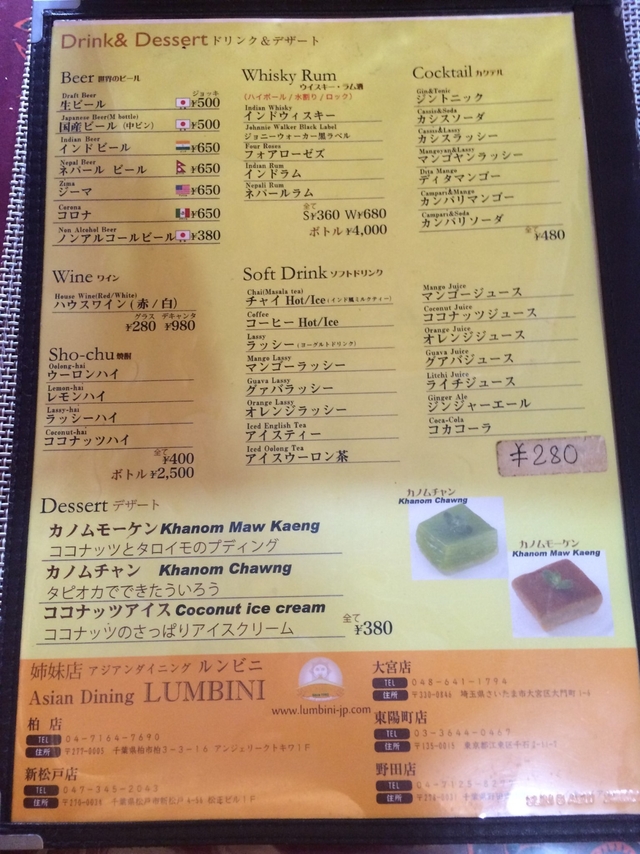 Drink& Dessert ドリンク&デザート
Beer 世界のビール
Draft Beer ジョッキ
生ビール ¥500
Japanese Beer(M bottle)
国産ビール (中ビン) ¥500
Indian Beer
インドビール ¥650
Nepal Beer
ネパール ビール ¥650
Zima
ジーマ ¥650
Corona
コロナ ¥650
Non Alcohol Beer
ノンアルコールビール ¥380
Whisky Rum
ウイスキー・ラム酒
(ハイボール / 水割り / ロック)
Indian Whisky
インドウィスキー
Johnnie Walker Black Label
ジョニーウォーカー黒ラベル
Four Roses
フォアローゼズ
Indian Rum
インドラム
Nepali Rum
ネパールラム
全て
S¥360 W¥680
ボトル ¥4,000
Cocktail カクテル
Gin&Tonic
ジントニック
Cassis&Soda
カシスソーダ
Cassis&Lassy
カシスラッシー
Mangoyan&Lassy
マンゴヤンラッシー
Dita Mango
ディタマンゴー
Campari&Mango
カンパリマンゴー
Campari&Soda
カンパリソーダ
全て ¥480
Wine ワイン
House Wine(Red/White)
ハウスワイン ( 赤 / 白 )
グラス デキャンタ
¥280 ¥980
Sho-chu 焼酎
Oolong-hai
ウーロンハイ
Lemon-hai
レモンハイ
Lassy-hai
ラッシーハイ
Coconut-hai
ココナッツハイ
全て ¥400
ボトル ¥2,500
Soft Drink ソフトドリンク
Chai(Masala tea)
チャイ Hot/Ice (インド風ミルクティー)
Coffee
コーヒー Hot/Ice
Lassy
ラッシー (ヨーグルトドリンク)
Mango Lassy
マンゴーラッシー
Guava Lassy
グァバラッシー
Orange Lassy
オレンジラッシー
Iced English Tea
アイスティー
Iced Oolong Tea
アイスウーロン茶
Mango Juice
マンゴージュース
Coconut Juice
ココナッツジュース
Orange Juice
オレンジジュース
Guava Juice
グアバジュース
Litchi Juice
ライチジュース
Ginger Ale
ジンジャーエール
Coca-Cola
コカコーラ
¥280
Dessert デザート
カノムモーケン Khanom Maw Kaeng
ココナッツとタロイモのプディング
カノムチャン Khanom Chawng
タピオカでできたういろう
ココナッツアイス Coconut ice cream
ココナッツのさっぱりアイスクリーム
全て ¥380
カノムチャン
Khanom Chawng
カノムモーケン
Khanom Maw Kaeng
姉妹店 アジアンダイニング ルンビニ
Asian Dining LUMBINI
www.lumbini-jp.com
柏 店
TEL 04-7164-7690
住所 〒277-0005 千葉県柏市柏3-3-16 アンジェリークトキワ1F
新松戸店
TEL 047-345-2043
住所 千葉県松戸市新松戸
大宮店
TEL 048-641-1794
住所 〒330-0846 埼玉県さいたま市大宮区大門町
東陽町店
TEL 03-3644-0467
住所 〒135-0016 東京都江東区
野田店
TEL 04-7125-
住所